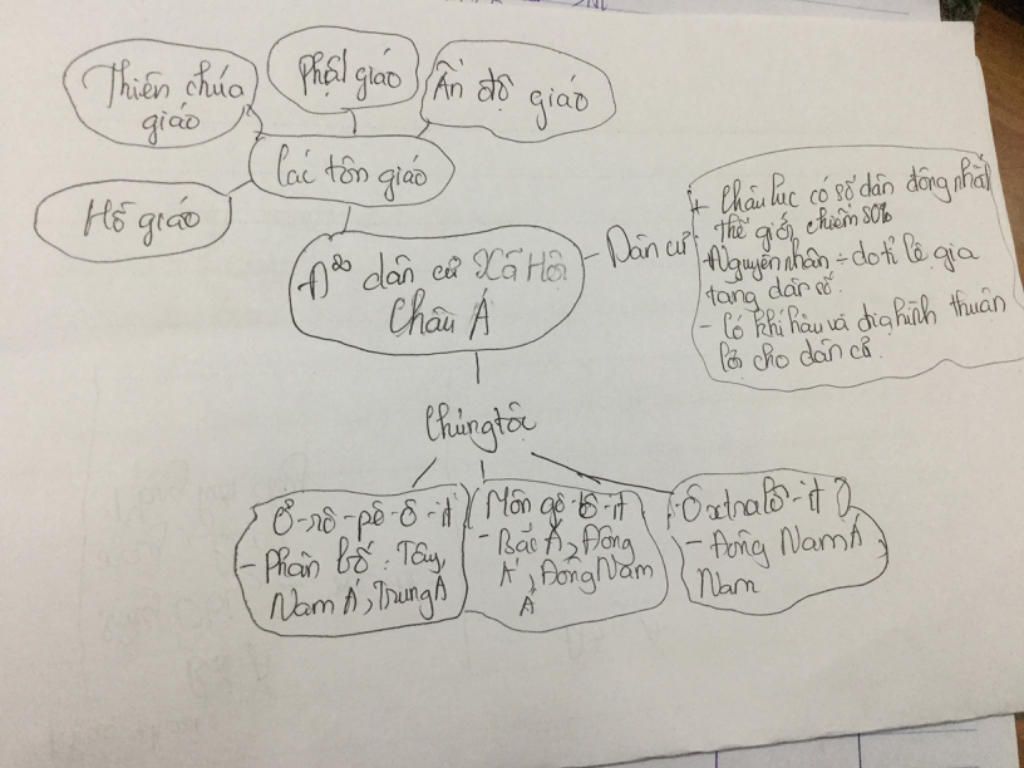 Thiên chúa
giáo
Phật giáo
Ấn độ giáo
Các tôn giáo
Hồ giáo
Đ² dân cư Xã Hội
Châu Á
Dân cư
+ Châu lục có số dân đông nhất
thế giới, chiếm
+ Nguyên nhân ÷ do tỉ lệ gia
tang dân số.
- Có khí hậu và địa hình thuân
lợi cho dân cư.
Chủng tộc
Ơ-rô-pê-ô-it
- Phân bố: Tây,
Nam Á, Trung Á
Môn gô-lô-it
- Bắc Á, Đông
Á, Đông Nam
Á
Ôxtralô-it
- Đông Nam Á,
Nam